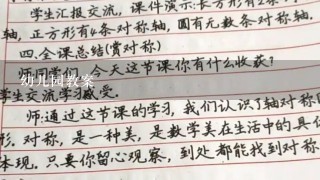 学生汇报交流，课件演示：长方形有2条
轴，正方形有4条对称轴，圆有无数条对称轴
四.全课总结(赏对称)
今天这节课你有什么收获?
幼儿园教案
学生交流学习感受.
师:通过这节课的学习,我们认识了轴对称
形.对称,是一种美,是数学美在生活中的具
体现.只要你留心观察,到处都能找到对称